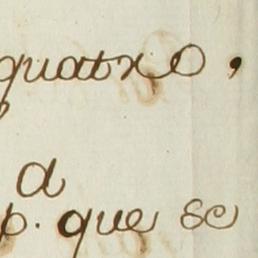 quatro,
a
p. que se